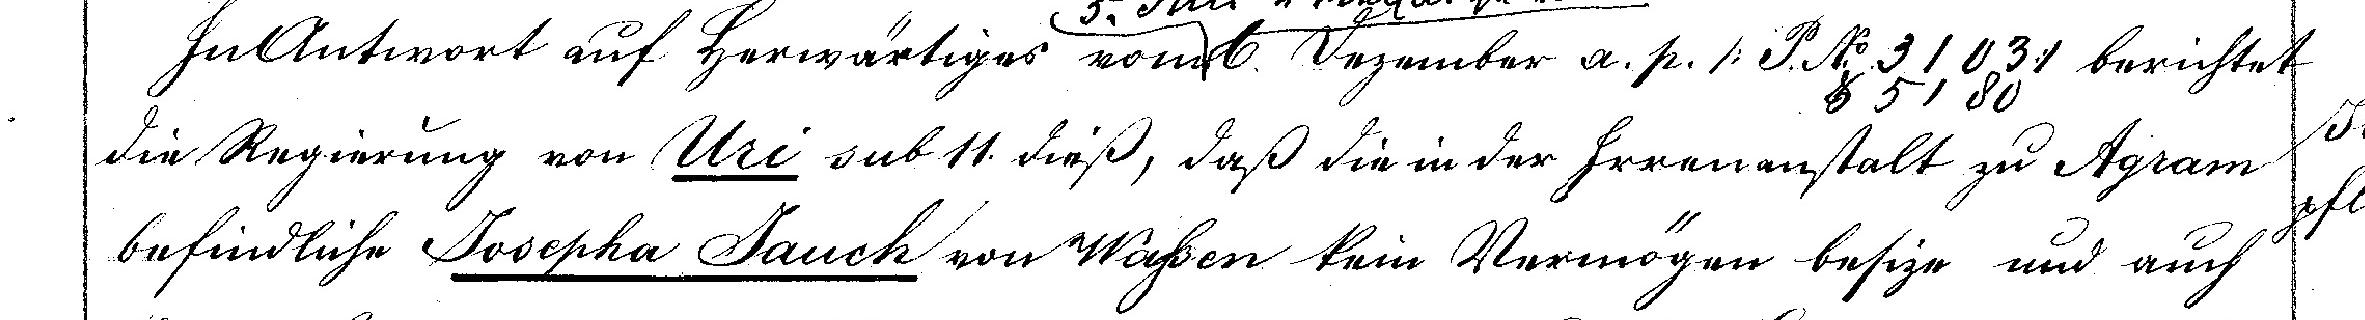 5. Juli
In Antwort auf Herwärtiges vom 6. Dezember a. p. /: P. No 3103 :/ berichtet
5180
die Regierung von Uri sub 11. dieß, daß die in der Irrenanstalt zu Agram
befindliche Josepha Jauch von Waßen kein Vermögen besize und auch